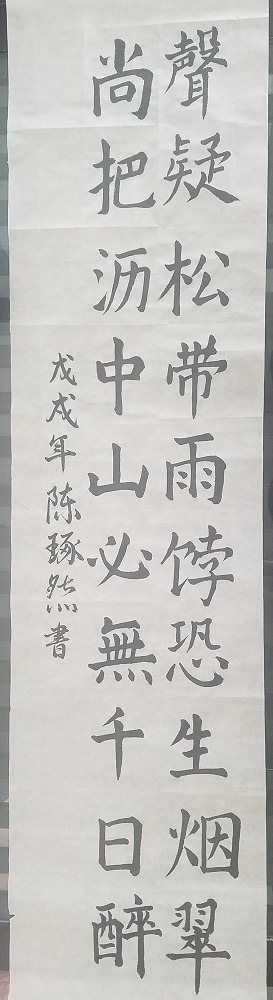 聲疑松带雨饽恐生烟翠
尚把沥中山必無千日醉
戊戌年陈琢然書